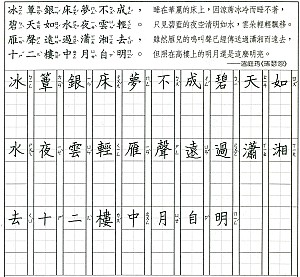 冰簟銀床夢不成，
碧天如水夜雲輕。
雁聲遠過瀟湘去，
十二樓中月自明。
睡在華麗的床上，因涼席冰冷而睡不著，
只見碧藍的夜空清明如水，雲朵輕輕飄移。
雖然雁兒的鳴叫聲已經傳送過瀟湘而遠去，
但照在高樓上的明月還是這麼明亮。
——溫庭筠《瑤瑟怨》
冰簟銀床夢不成碧天如
水夜雲輕雁聲遠過瀟湘
去十二樓中月自明